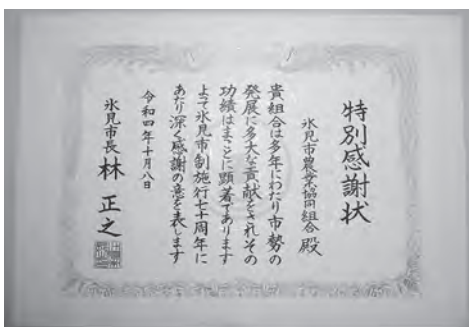 特別感謝状
氷見市農業協同組合 殿
貴組合は多年にわたり市勢の
発展に多大な貢献をされその
功績はまことに顕著であります
よって氷見市制施行七十周年に
あたり深く感謝の意を表します
令和四年十月八日
氷見市長 林 正之